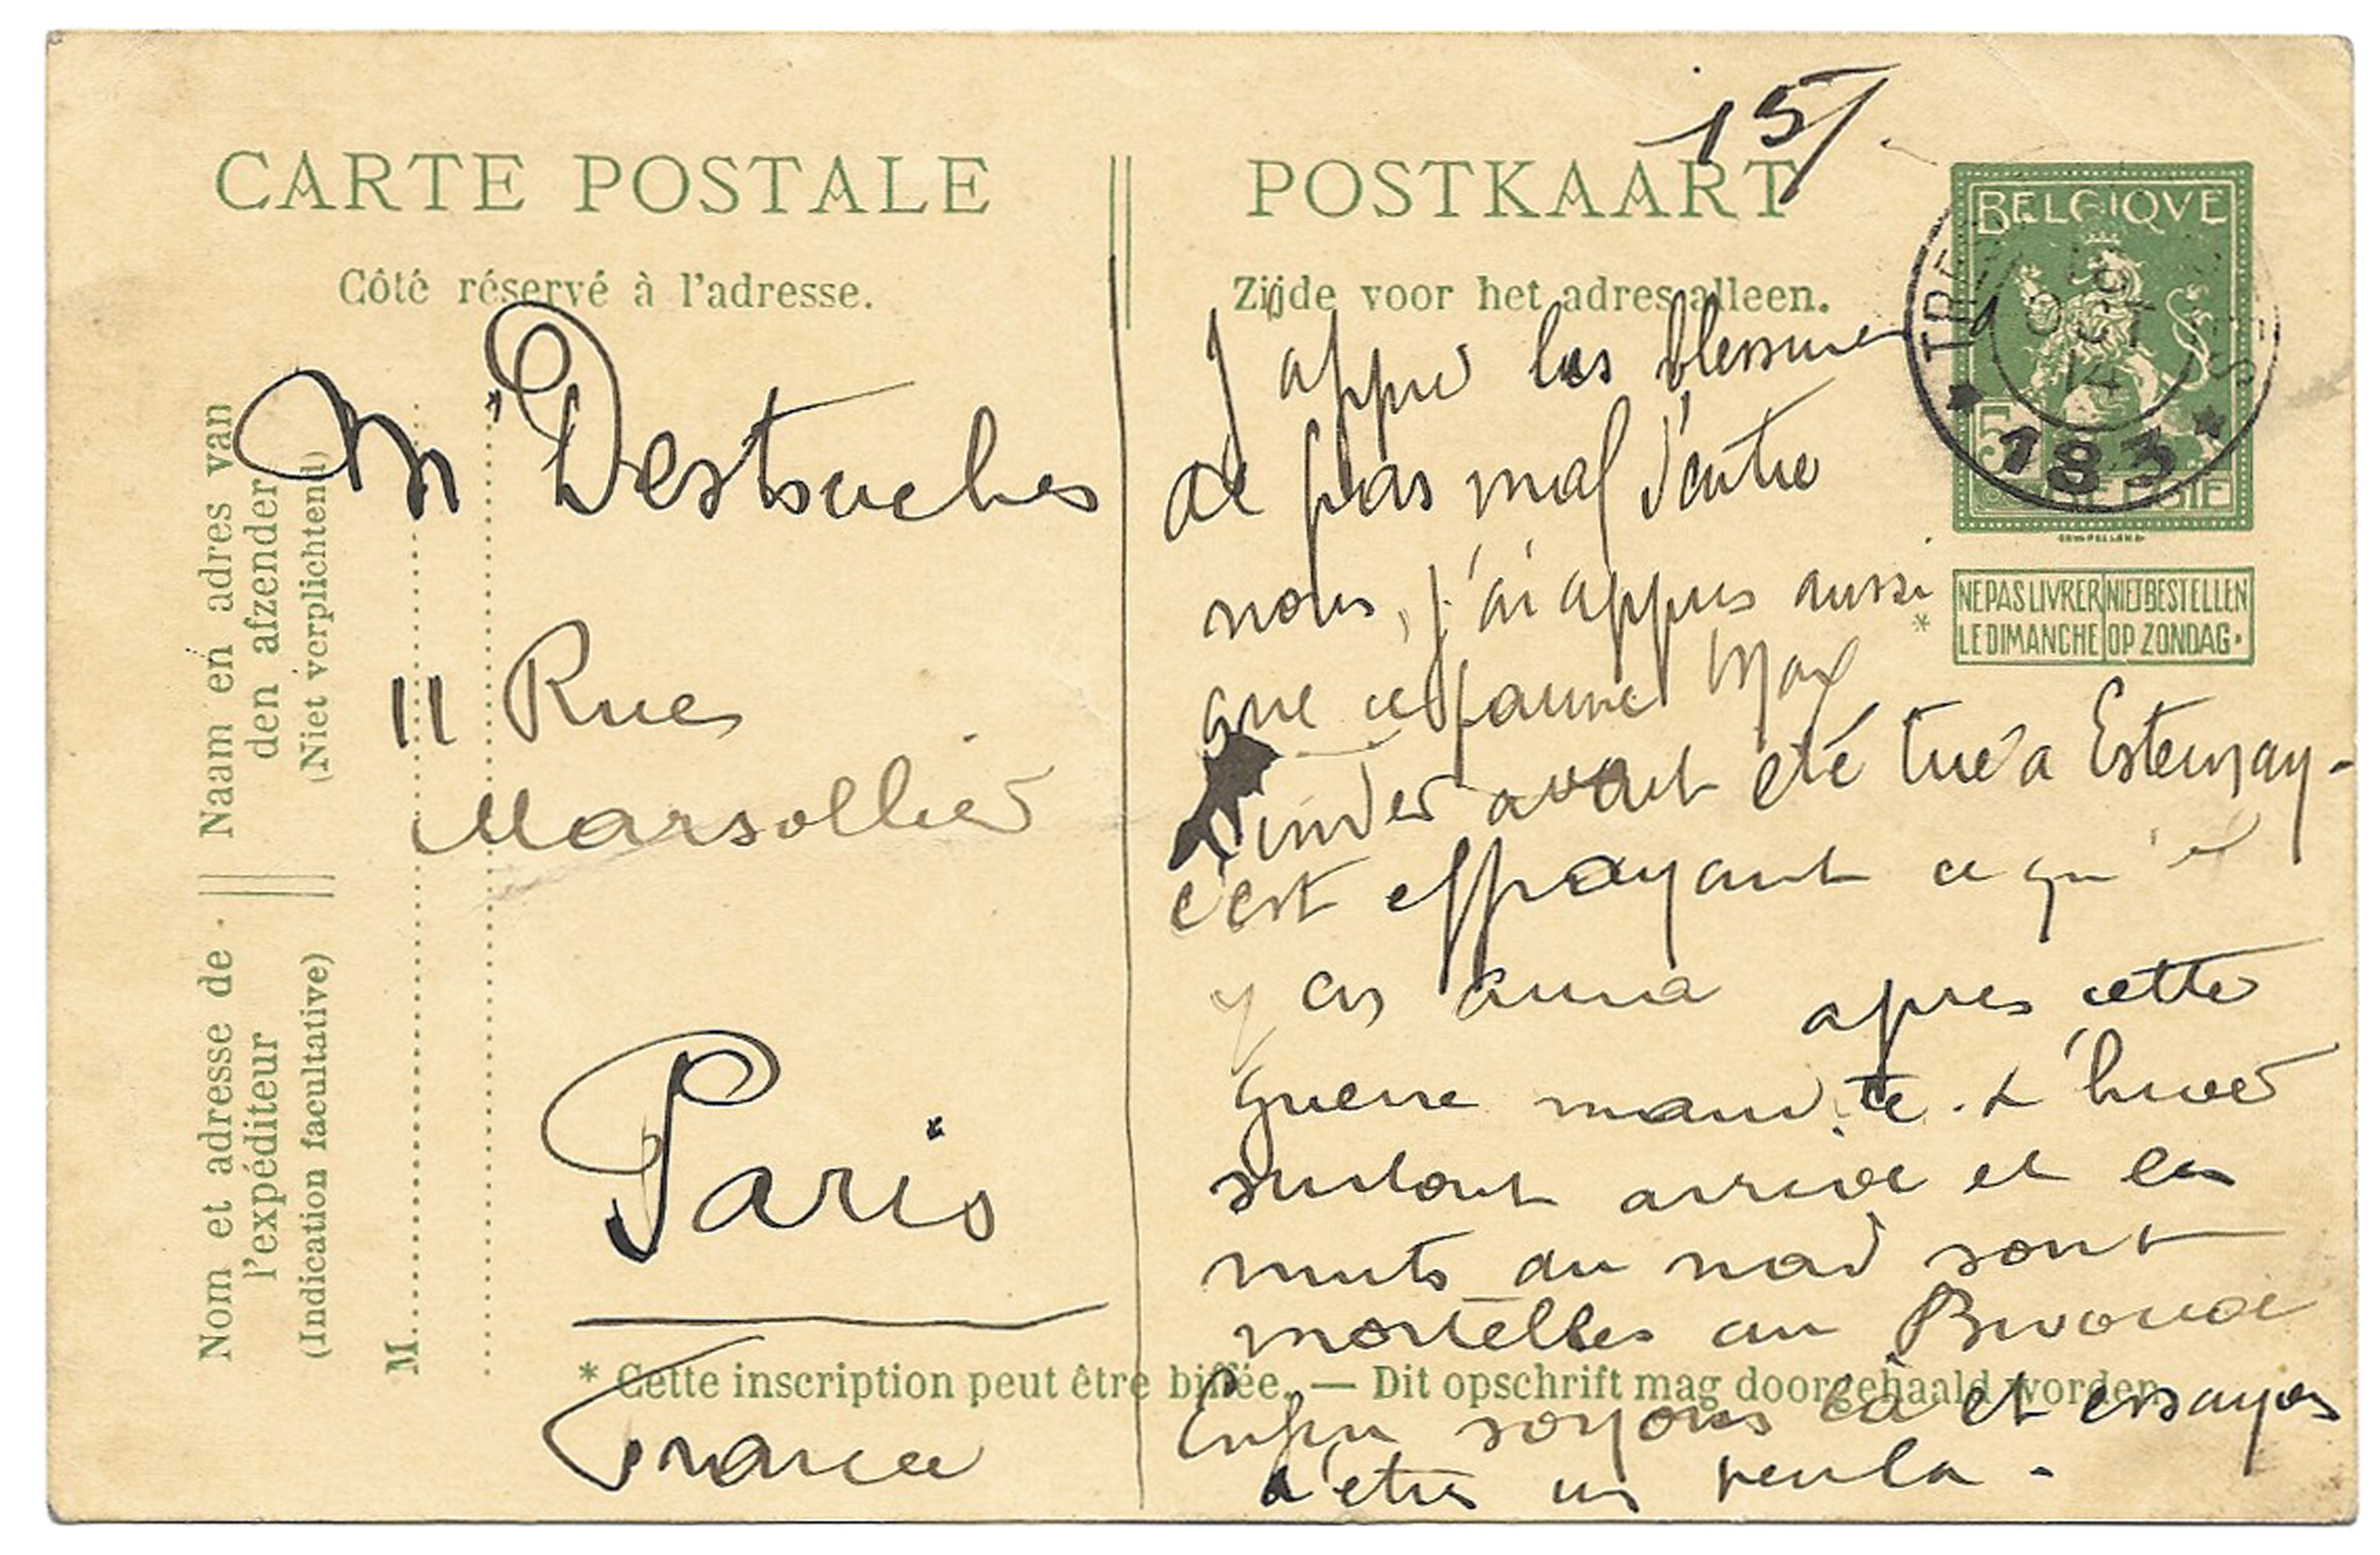 15/.
CARTE POSTALE
Côté réservé à l'adresse.
POSTKAART
Zijde voor het adres alleen.
BELGIQVE
5
BELGIE
TRE
OCT
14
183
NE PAS LIVRER NIET BESTELLEN
LE DIMANCHE OP ZONDAG.
Naam en adres van
den afzender
(Niet verplichtend)
Nom et adresse de
l'expéditeur
(Indication facultative)
M
Mr Destouches
11 Rue
Marsollier
Paris
France
J'appri les blessures
de pas mal d'entre
nous, j'ai appris aussi *
que ce pauvre Max
Linder avait été tué a Esternay -
c'est effrayant ce qu'il
y en aura apres cette
guerre maudite. L'hiver
surtout arrive et les
nuits du nord sont
mortelles au Bivouac
Enfin soyons là et essayons
d'etre un peu là.
* Cette inscription peut être biffée. — Dit opschrift mag doorgehaald worden.